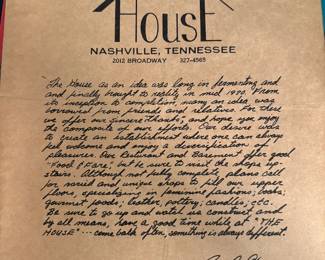 HOUSE
NASHVILLE, TENNESSEE
2012 BROADWAY 327-4565
The House as an idea was long in fermenting and
and finally brought to reality in mid 1970. From
its inception to completion many an idea was
borrowed from friends and relatives. For these
we offer our sincere thanks; and hope you enjoy
the composite of our efforts. Our desire was
to create an establishment where one can always
feel welcome and enjoy a diversification of
pleasures. Our Resturant and Basement offer good
"Food & Fare;" but be sure to visit the shops up
stairs. Although not fully complete, plans call
for varied and unique shops to fill our upper
floors, specializing in feminine fashions; books;
gourmet foods; leather, pottery; candles; etc.
Be sure to go up and watch us construct, and
by all means, have a good time while at "THE
HOUSE" --- come back often, something is always different.